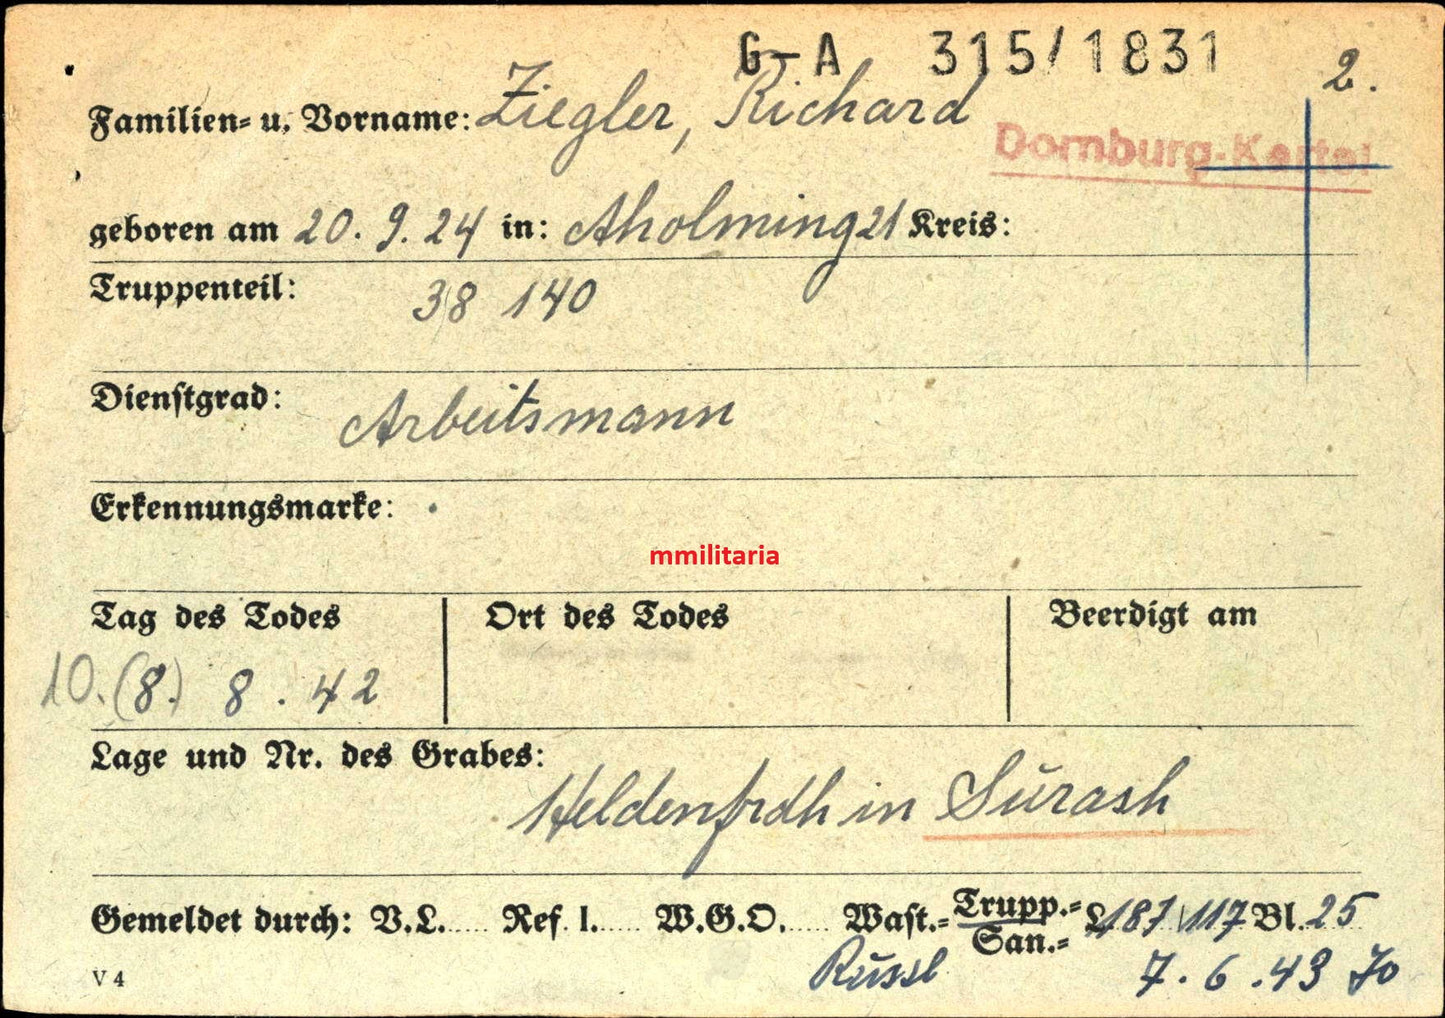 G-A 315/1831
2.
Familien- u. Vorname: Ziegler, Richard
Dornburg-Kartei
geboren am 20. 9. 24 in: Aholming 21 Kreis:
Truppenteil: 38 140
Dienstgrad: Arbeitsmann
Erkennungsmarke:
mmilitaria
Tag des Todes Ort des Todes Beerdigt am
10. (8.) 8. 42
Lage und Nr. des Grabes:
Heldenfrdh in Sŭrash
Gemeldet durch: V.L. Ref. I. W.G.O. Wast.= Trupp.= San.= L 187 117 Bl. 25
Rŭssl 7. 6. 43
V 4